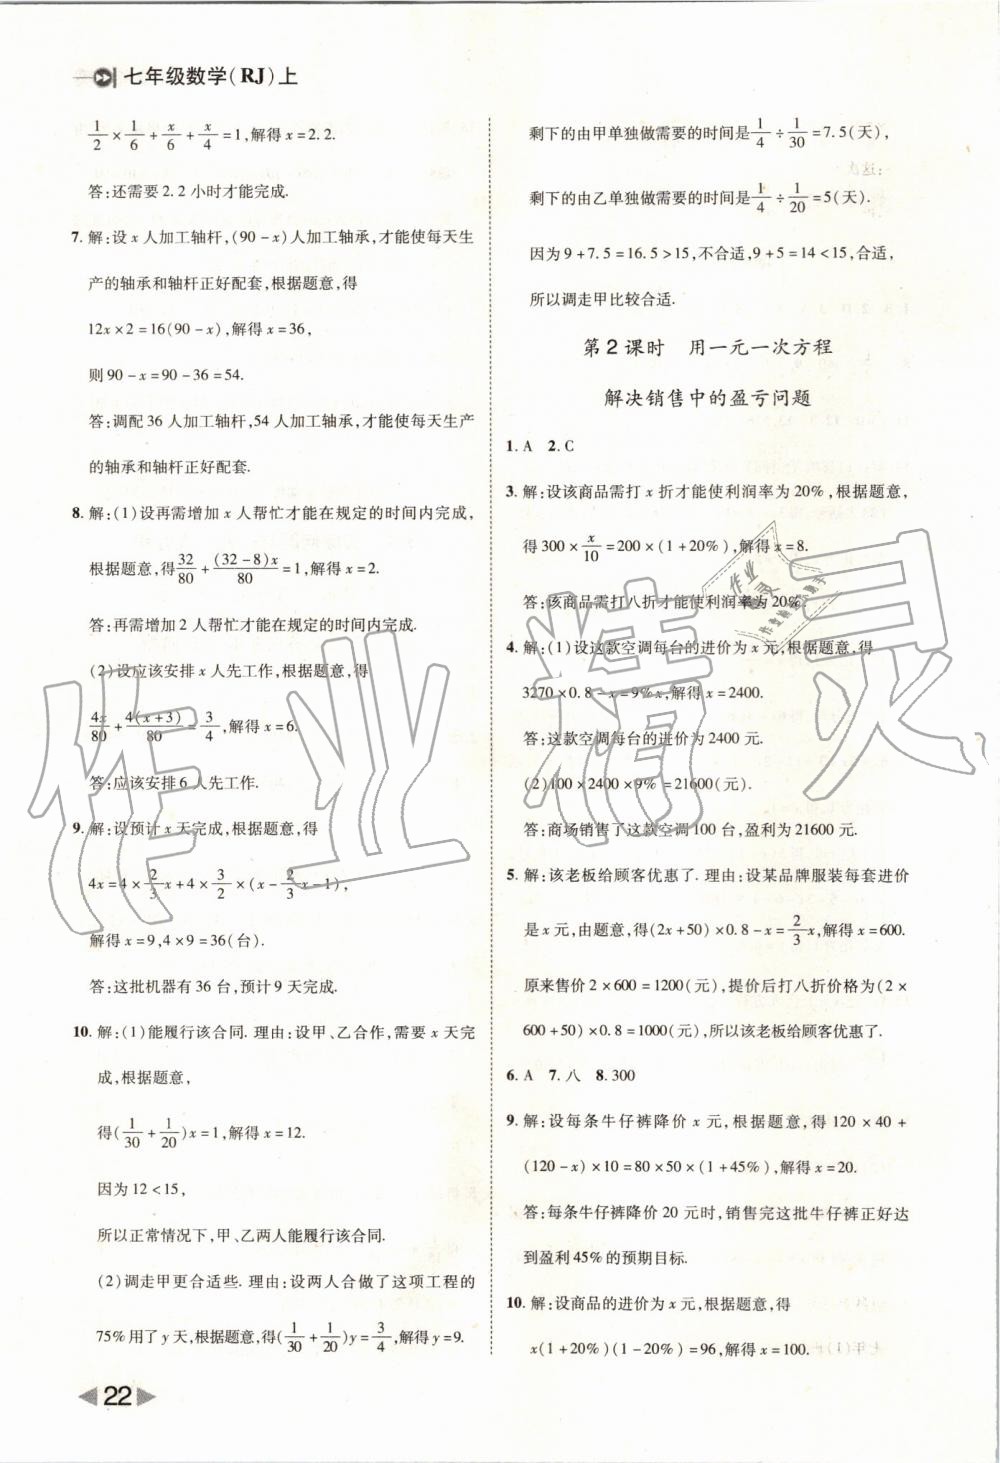 七年级数学(RJ)上
1/2×1/6+x/6+x/4=1,解得x=2.2.
答:还需要2.2小时才能完成.
7.解:设x人加工轴杆,(90-x)人加工轴承,才能使每天生
产的轴承和轴杆正好配套,根据题意,得
12x×2=16(90-x),解得x=36,
则90-x=90-36=54.
答:调配36人加工轴杆,54人加工轴承,才能使每天生产
的轴承和轴杆正好配套.
8.解:(1)设再需增加x人帮忙才能在规定的时间内完成,
根据题意,得32/80+(32-8)x/80=1,解得x=2.
答:再需增加2人帮忙才能在规定的时间内完成.
(2)设应该安排x人先工作,根据题意,得
4x/80+4(x+3)/80=3/4,解得x=6.
答:应该安排6人先工作.
9.解:设预计x天完成,根据题意,得
4x=4×2/3x+4×3/2×(x-2/3x-1),
解得x=9,4×9=36(台).
答:这批机器有36台,预计9天完成.
10.解:(1)能履行该合同.理由:设甲、乙合作,需要x天完
成,根据题意,
得(1/30+1/20)x=1,解得x=12.
因为12<15,
所以正常情况下,甲、乙两人能履行该合同.
(2)调走甲更合适些.理由:设两人合做了这项工程的
75%用了y天,根据题意,得(1/30+1/20)y=3/4,解得y=9.
22
剩下的由甲单独做需要的时间是1/4÷1/30=7.5(天),
剩下的由乙单独做需要的时间是1/4÷1/20=5(天).
因为9+7.5=16.5>15,不合适,9+5=14<15,合适,
所以调走甲比较合适.
第2课时 用一元一次方程
解决销售中的盈亏问题
1.A 2.C
3.解:设该商品需打x折才能使利润率为20%,根据题意,
得300×x/10=200×(1+20%),解得x=8.
答:该商品需打八折才能使利润率为20%.
4.解:(1)设这款空调每台的进价为x元,根据题意,得
3270×0.8-x=9%x,解得x=2400.
答:这款空调每台的进价为2400元.
(2)100×2400×9%=21600(元).
答:商场销售了这款空调100台,盈利为21600元.
5.解:该老板给顾客优惠了.理由:设某品牌服装每套进价
是x元,由题意,得(2x+50)×0.8-x=2/3x,解得x=600.
原来售价2×600=1200(元),提价后打八折价格为(2×
600+50)×0.8=1000(元),所以该老板给顾客优惠了.
6.A 7.八 8.300
9.解:设每条牛仔裤降价x元,根据题意,得120×40+
(120-x)×10=80×50×(1+45%),解得x=20.
答:每条牛仔裤降价20元时,销售完这批牛仔裤正好达
到盈利45%的预期目标.
10.解:设商品的进价为x元,根据题意,得
x(1+20%)(1-20%)=96,解得x=100.
作业精灵